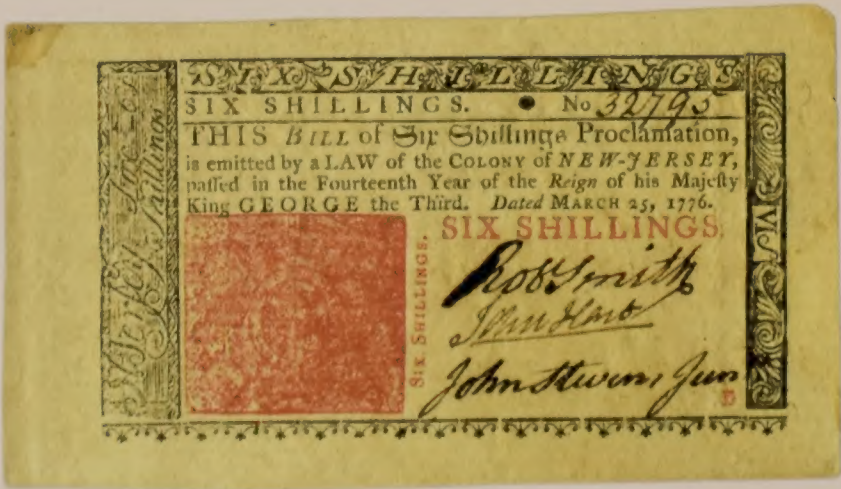 SIX SHILLINGS
SIX SHILLINGS. No 32795
THIS BILL of Six Shillings Proclamation,
is emitted by a LAW of the COLONY of NEW-JERSEY,
paſſed in the Fourteenth Year of the Reign of his Majeſty
King GEORGE the Third. Dated MARCH 25, 1776.
SIX SHILLINGS.
Robt Smith
John Hart
John Stevens Jun
SIX SHILLINGS.
Jersey Shillings
VI S